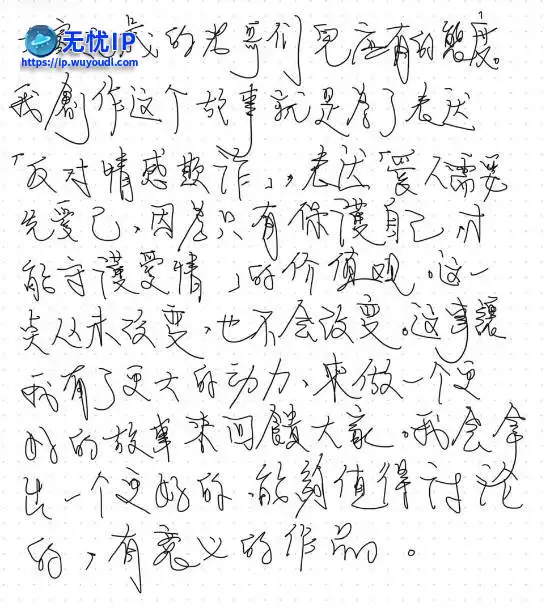 无忧IP
https://ip.wuyoudl.com
的老哥们更应有的態度。
我創作这个故事就是為了表达
「反对情感欺诈」，表达「愛人需要
先愛己，因為只有保護自己，才
能守護愛情」的价值观。这一
点从未改变，也不会改变。这事讓
我有了更大的动力，来做一个更
好的故事来回饋大家。我会拿
出一个更好的，能夠值得讨论
的，有意义的作品。